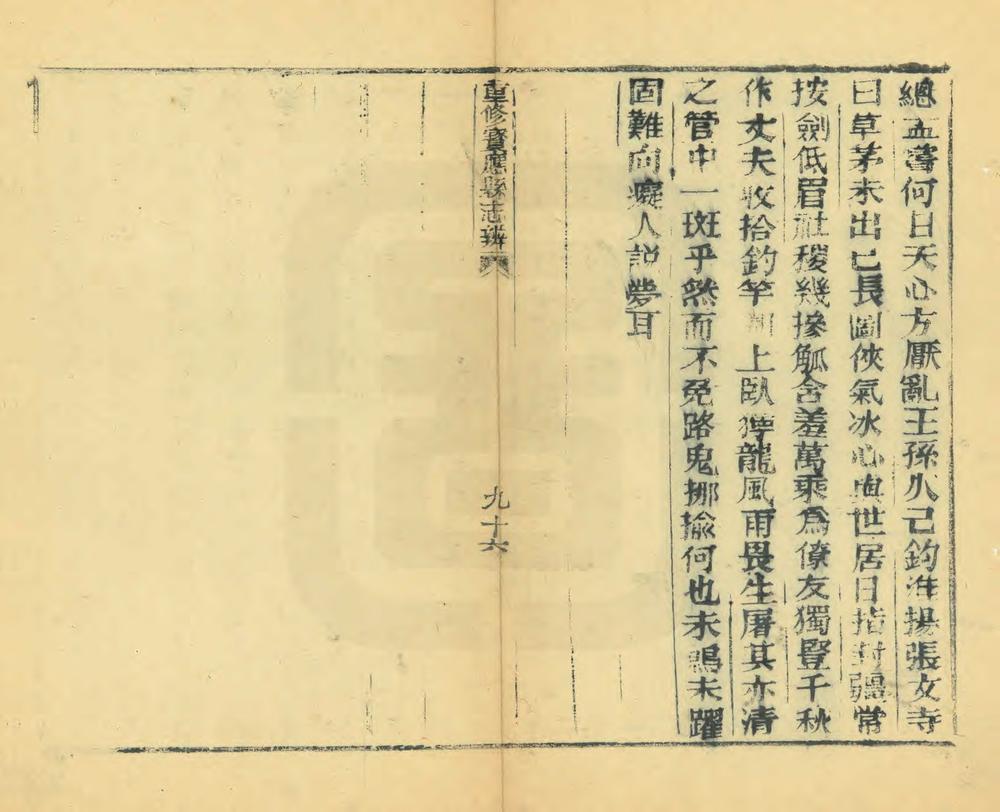 總五薵何日天心方厭亂王孫久已釣淮揚張文寺
曰草茅未出已長圖俠氣冰心與世居日指封疆常
按劍低眉社稷幾摻觚含羞萬乘爲僚友獨豎千秋
作丈夫收拾釣竿 上臥 龍風雨畏生屠其亦清
之管中一斑乎然而不免路鬼揶揄何也未鳴未躍
固難向癡人說夢耳
重修寶應縣志辨
九十六